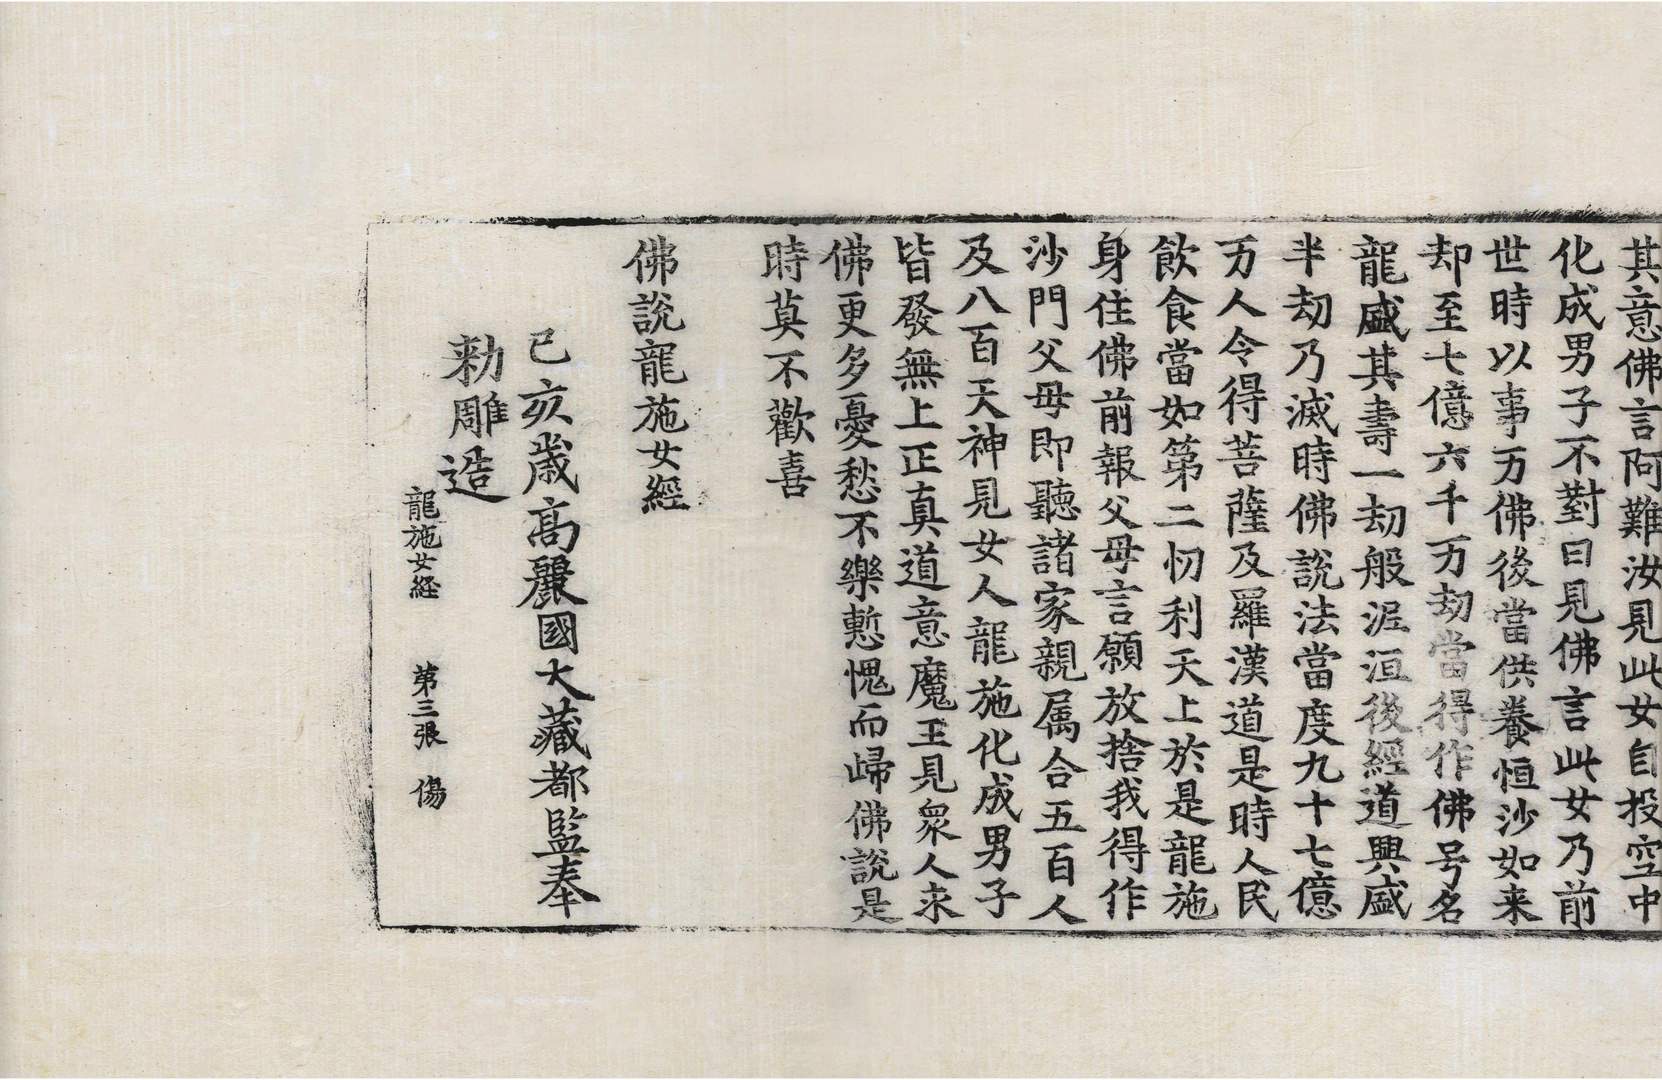 其意佛言阿難汝見此女自投空中
化成男子不對曰見佛言此女乃前
世時以事万佛後當供養恒沙如来
却至七億六千万劫當得作佛号名
龍盛其壽一劫般泥洹後經道興盛
半劫乃滅時佛說法當度九十七億
万人令得菩薩及羅漢道是時人民
飲食當如第二忉利天上於是龍施
身住佛前報父母言願放捨我得作
沙門父母即聽諸家親属合五百人
及八百天神見女人龍施化成男子
皆發無上正真道意魔王見衆人求
佛更多憂愁不樂慙愧而歸佛說是
時莫不歡喜
佛說龍施女經
己亥歲高麗國大藏都監奉
勑雕造
龍施女経 第三張 傷